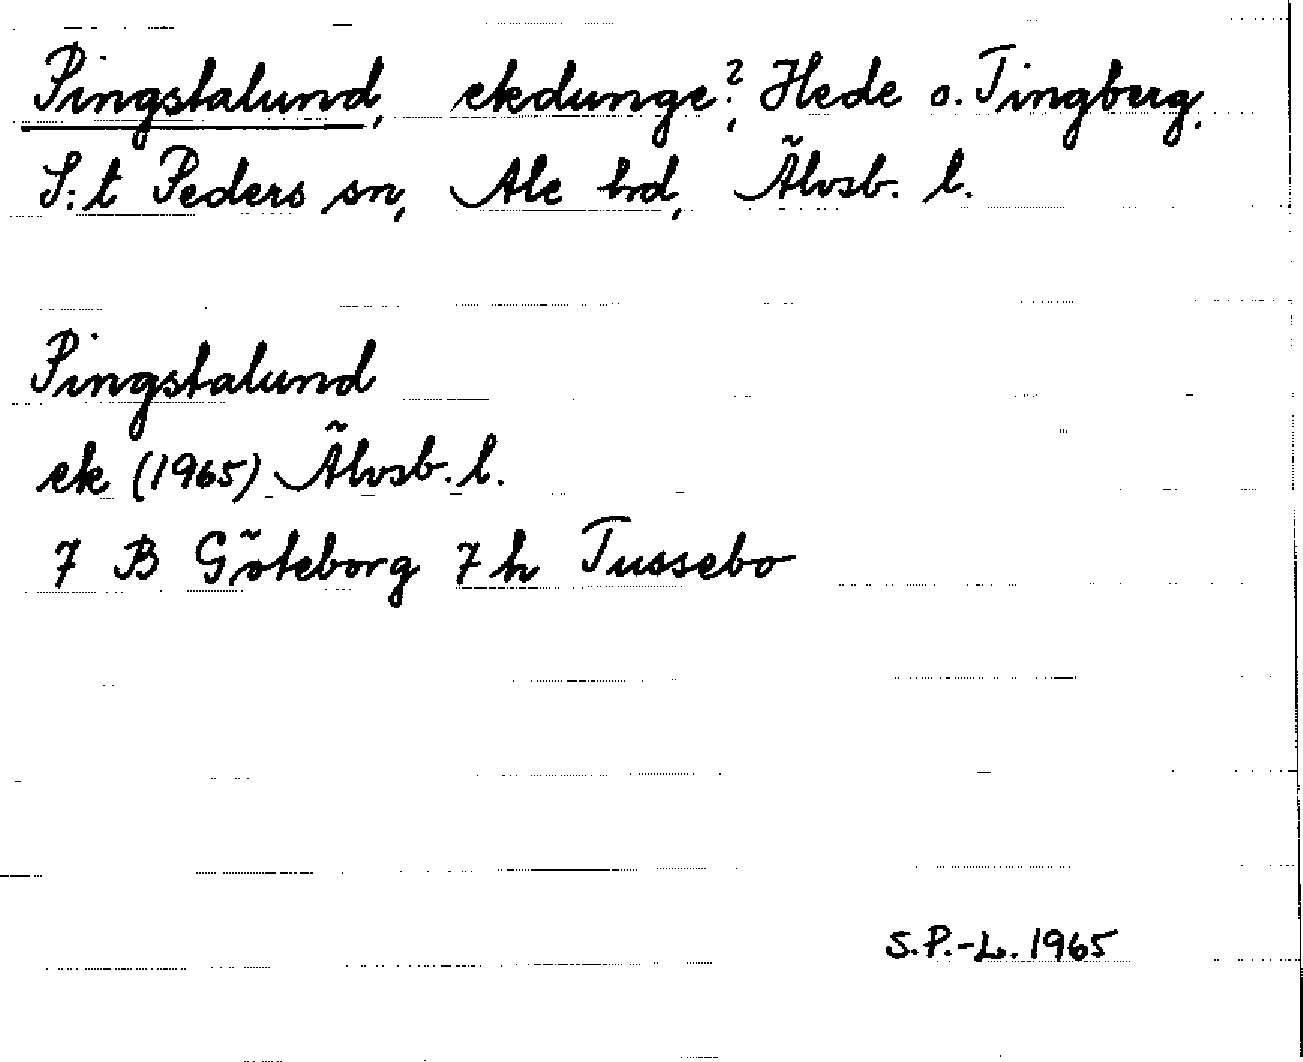 Pingstalund, ekdunge?, Hede o. Tingberg,
S:t Peders sn, Ale hd, Älvsb. l.
Pingstalund
ek (1965) Älvsb. l.
7 B Göteborg 7 h Tussebo
S.P.-L. 1965